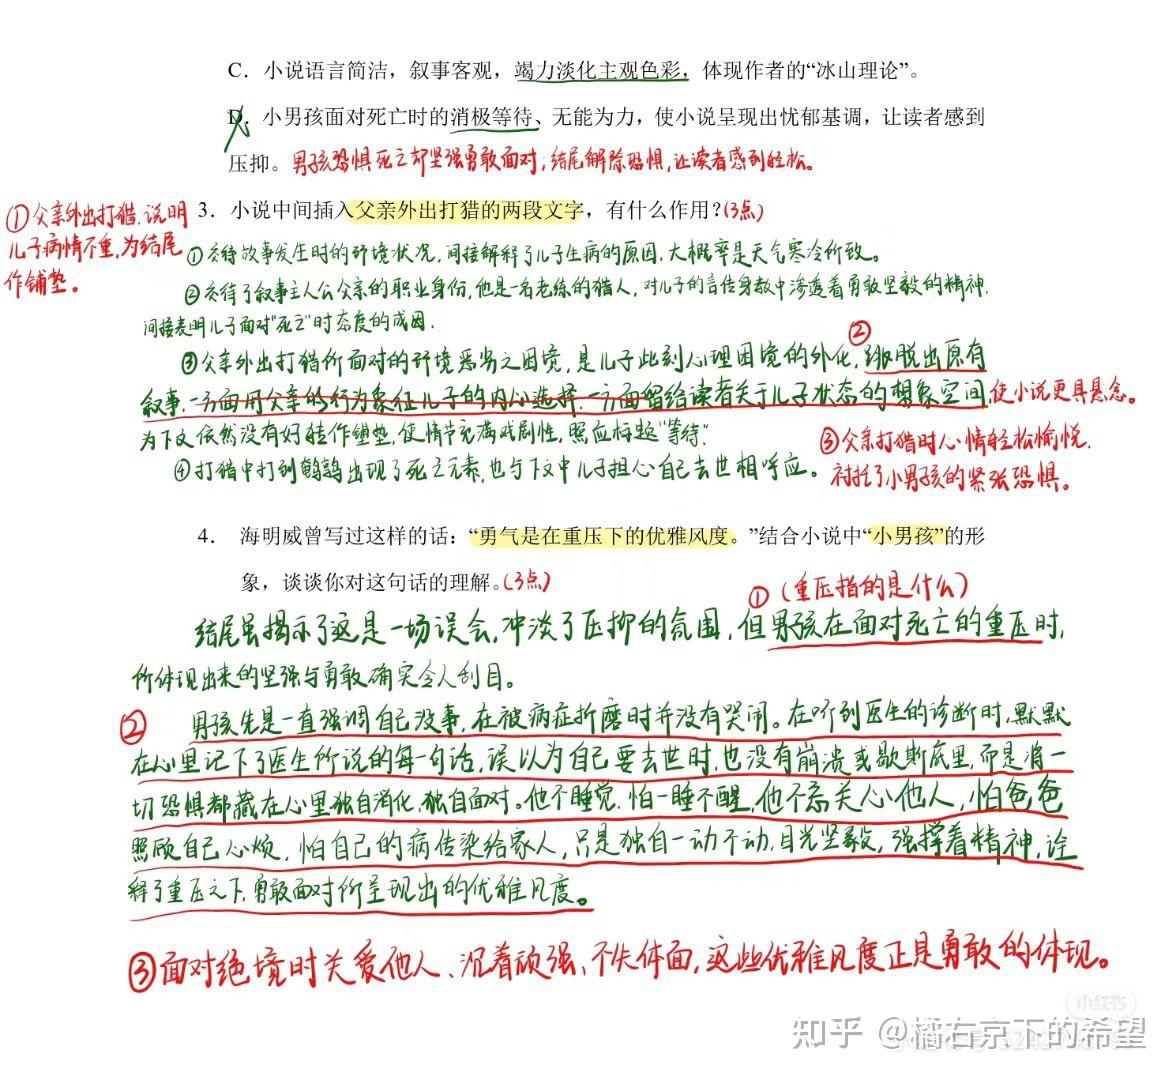 C．小说语言简洁，叙事客观，竭力淡化主观色彩，体现作者的“冰山理论”。
D．小男孩面对死亡时的消极等待、无能为力，使小说呈现出忧郁基调，让读者感到
压抑。男孩恐惧死亡却坚强勇敢面对；结尾解除恐惧，让读者感到轻松。
①父亲外出打猎，说明
儿子病情不重，为结尾
作铺垫。
3．小说中间插入父亲外出打猎的两段文字，有什么作用？(3点)
①交待故事发生时的环境状况，间接解释了儿子生病的原因，大概率是天气寒冷所致。
②交待了叙事主人公父亲的职业身份，他是一名老练的猎人，对儿子的言传身教中渗透着勇敢坚毅的精神，
间接表明儿子面对“死亡”时态度的成因．
③父亲外出打猎所面对的环境恶劣之困境，是儿子此刻心理困境的外化，②跳脱出原有
叙事，一方面用父亲的行为象征儿子的内心选择，一方面留给读者关于儿子状态的想象空间，使小说更具悬念。
为下文依然没有好转作铺垫，使情节充满戏剧性，照应标题“等待”．
③父亲打猎时心情轻松愉悦，
衬托了小男孩的紧张恐惧。
④打猎中打到鹌鹑出现了死亡元素，也与下文中儿子担心自己去世相呼应。
4．海明威曾写过这样的话：“勇气是在重压下的优雅风度。”结合小说中“小男孩”的形
象，谈谈你对这句话的理解。(3点)
①(重压指的是什么)
结尾虽揭示了这是一场误会，冲淡了压抑的氛围，但男孩在面对死亡的重压时，
所体现出来的坚强与勇敢确实令人刮目。
②男孩先是一直强调自己没事，在被病症折磨时并没有哭闹。在听到医生的诊断时，默默
在心里记下了医生所说的每一句话，误以为自己要去世时，也没有崩溃或歇斯底里，而是将一
切恐惧都藏在心里独自消化，独自面对。他不睡觉，怕一睡不醒，他不忘关心他人，怕爸爸
照顾自己心烦，怕自己的病传染给家人，只是独自一动不动，目光坚毅，强撑着精神，诠
释了重压之下，勇敢面对所呈现出的优雅风度。
③面对绝境时关爱他人、沉着顽强、不失体面，这些优雅风度正是勇敢的体现。
小红书
知乎 @橘右京下的希望